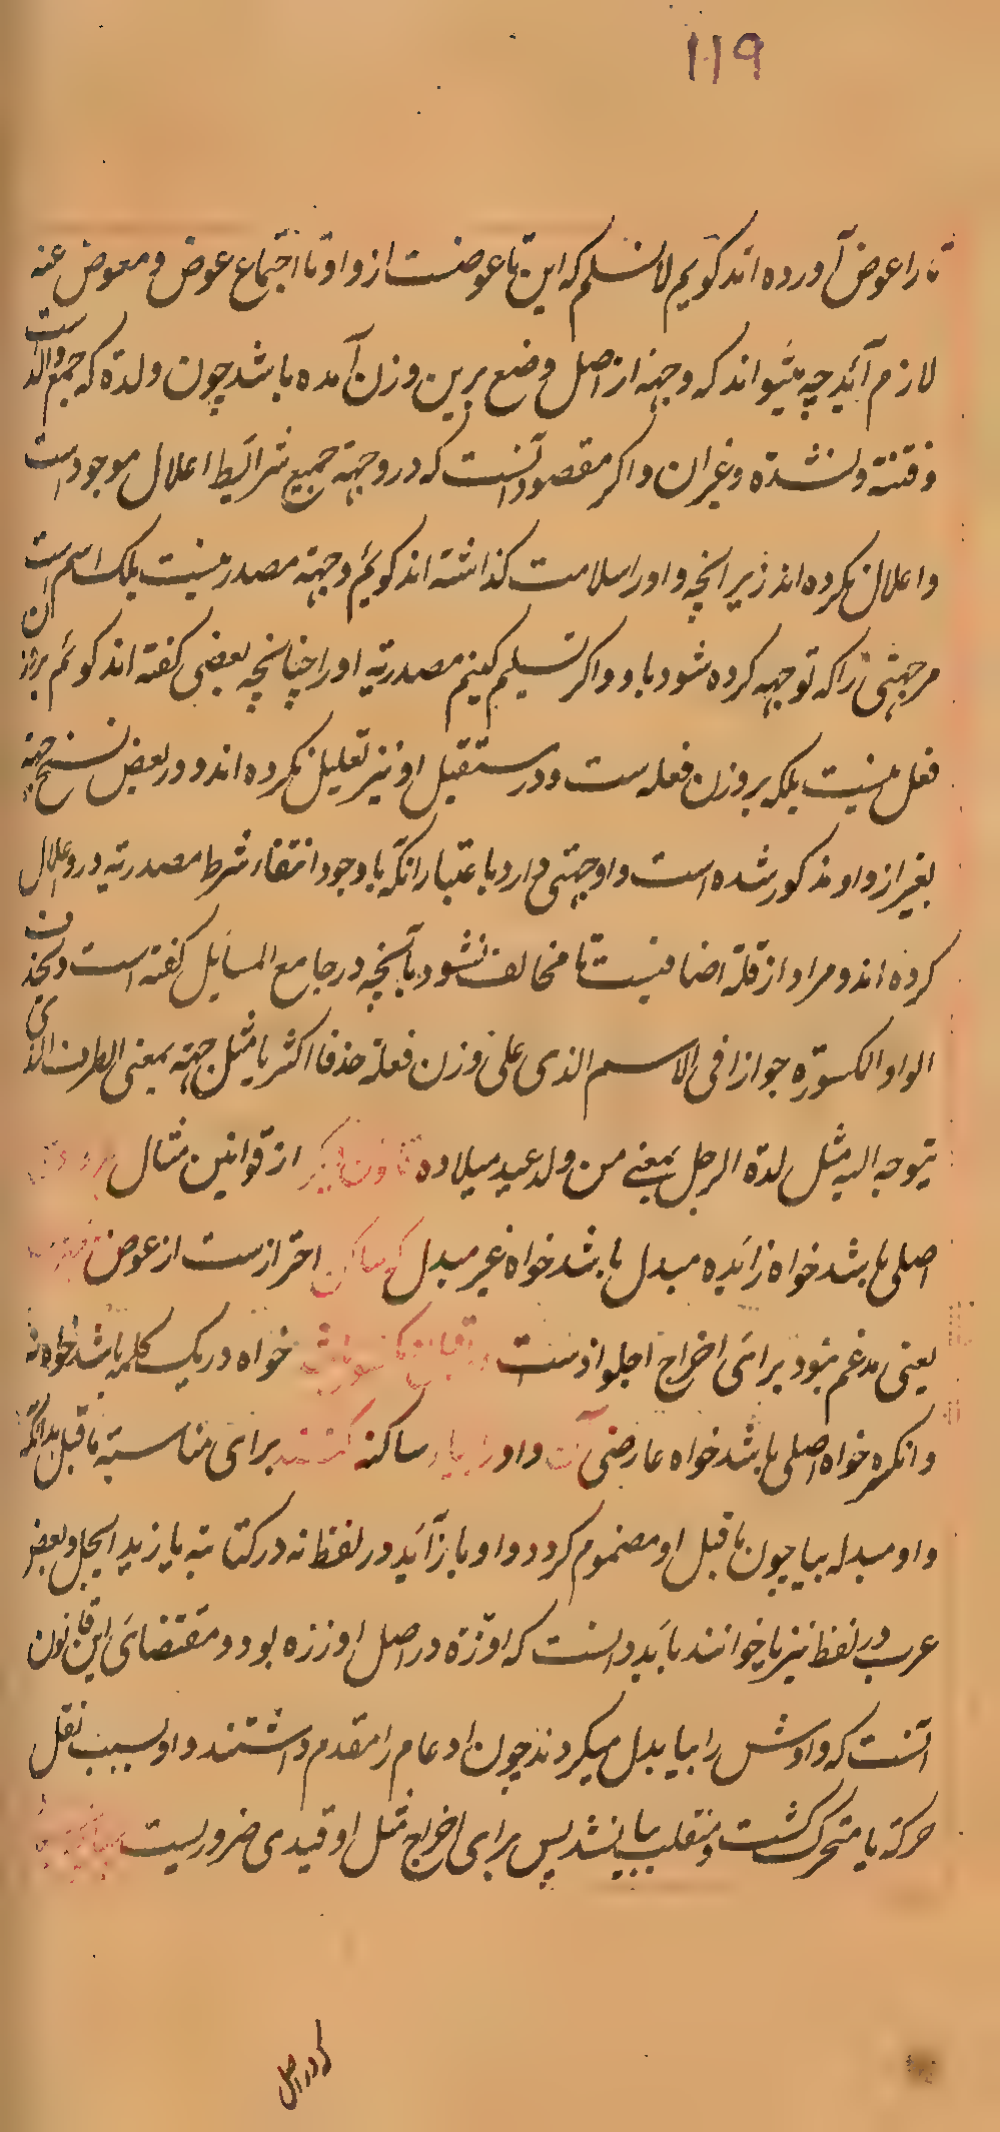 ۱۱۹
تا را عوض آورده اند کویم لانسلم که این تا عوضست از واو تا اجتماع عوض و معوض عنه
لازم آید چه میتواند که وجهة از اصل وضع برین وزن آمده باشد چون ولدة که جمع والد است
و قنته و نشدة و غیران و اکر مقصود آنست که در وجهة جمیع شرایط اعلال موجود است
و اعلال نکرده اند زیرانچه واو را سلامت کذاشته اند کوئم وجهة مصدر نیست بلک اسم است
مر جهتی را که توجهه کرده شود باو و اکر تسلیم کنیم مصدریة او را چنانچه بعضی کفته اند کوئم بر وزن
فعل نیست بلکه بر وزن فعله ست و در مستقبل او نیز تعلیل نکرده اند و در بعض نسخ جهة
بغیر از واو مذکور شده است و او جهتی دارد باعتبار انکه باوجود انتفاء شرط مصدریة در و اعلال
کرده اند و مراد از قلة اضافیست تا مخالف نشود بآنچه در جامع المسایل کفته است و تحذف
الواو الکسورة جوازا فی الاسم الذی علی وزن فعلة حذفا اکثریا مثل جهة بمعنی الطرف الذی
یتوجه الیه مثل لدة الرجل بمعنے من ولد عید میلاده قانون دیکر از قوانین مثال
اصلی باشد خواه زایده مبدل باشد خواه غیر مبدل که ساکن احترازست از عوض
یعنی مدغم نبود برای اخراج اجلواذست خواه در یک کلمه باشد خواه نه
و انکسره خواه اصلی باشد خواه عارضی آن واو را بیاء ساکنه کنند برای مناسبة ماقبل بدانکه
واو مبدله بیا چون ماقبل او مضموم کردد واو باز آید در لفظ نه در کتابة یا زید ایجل و بعض
عرب در لفظ نیز یا خوانند باید دانست که اوزة در اصل اوززه بود و مقتضای این قانون
آنست که واوش را بیا بدل میکردند چون ادغام را مقدم داشتند واو بسبب نقل
حرکة یا متحرک کشت و منقلب بیا نشد پس برای اخراج مثل او قیدی ضروریست
که در اصل